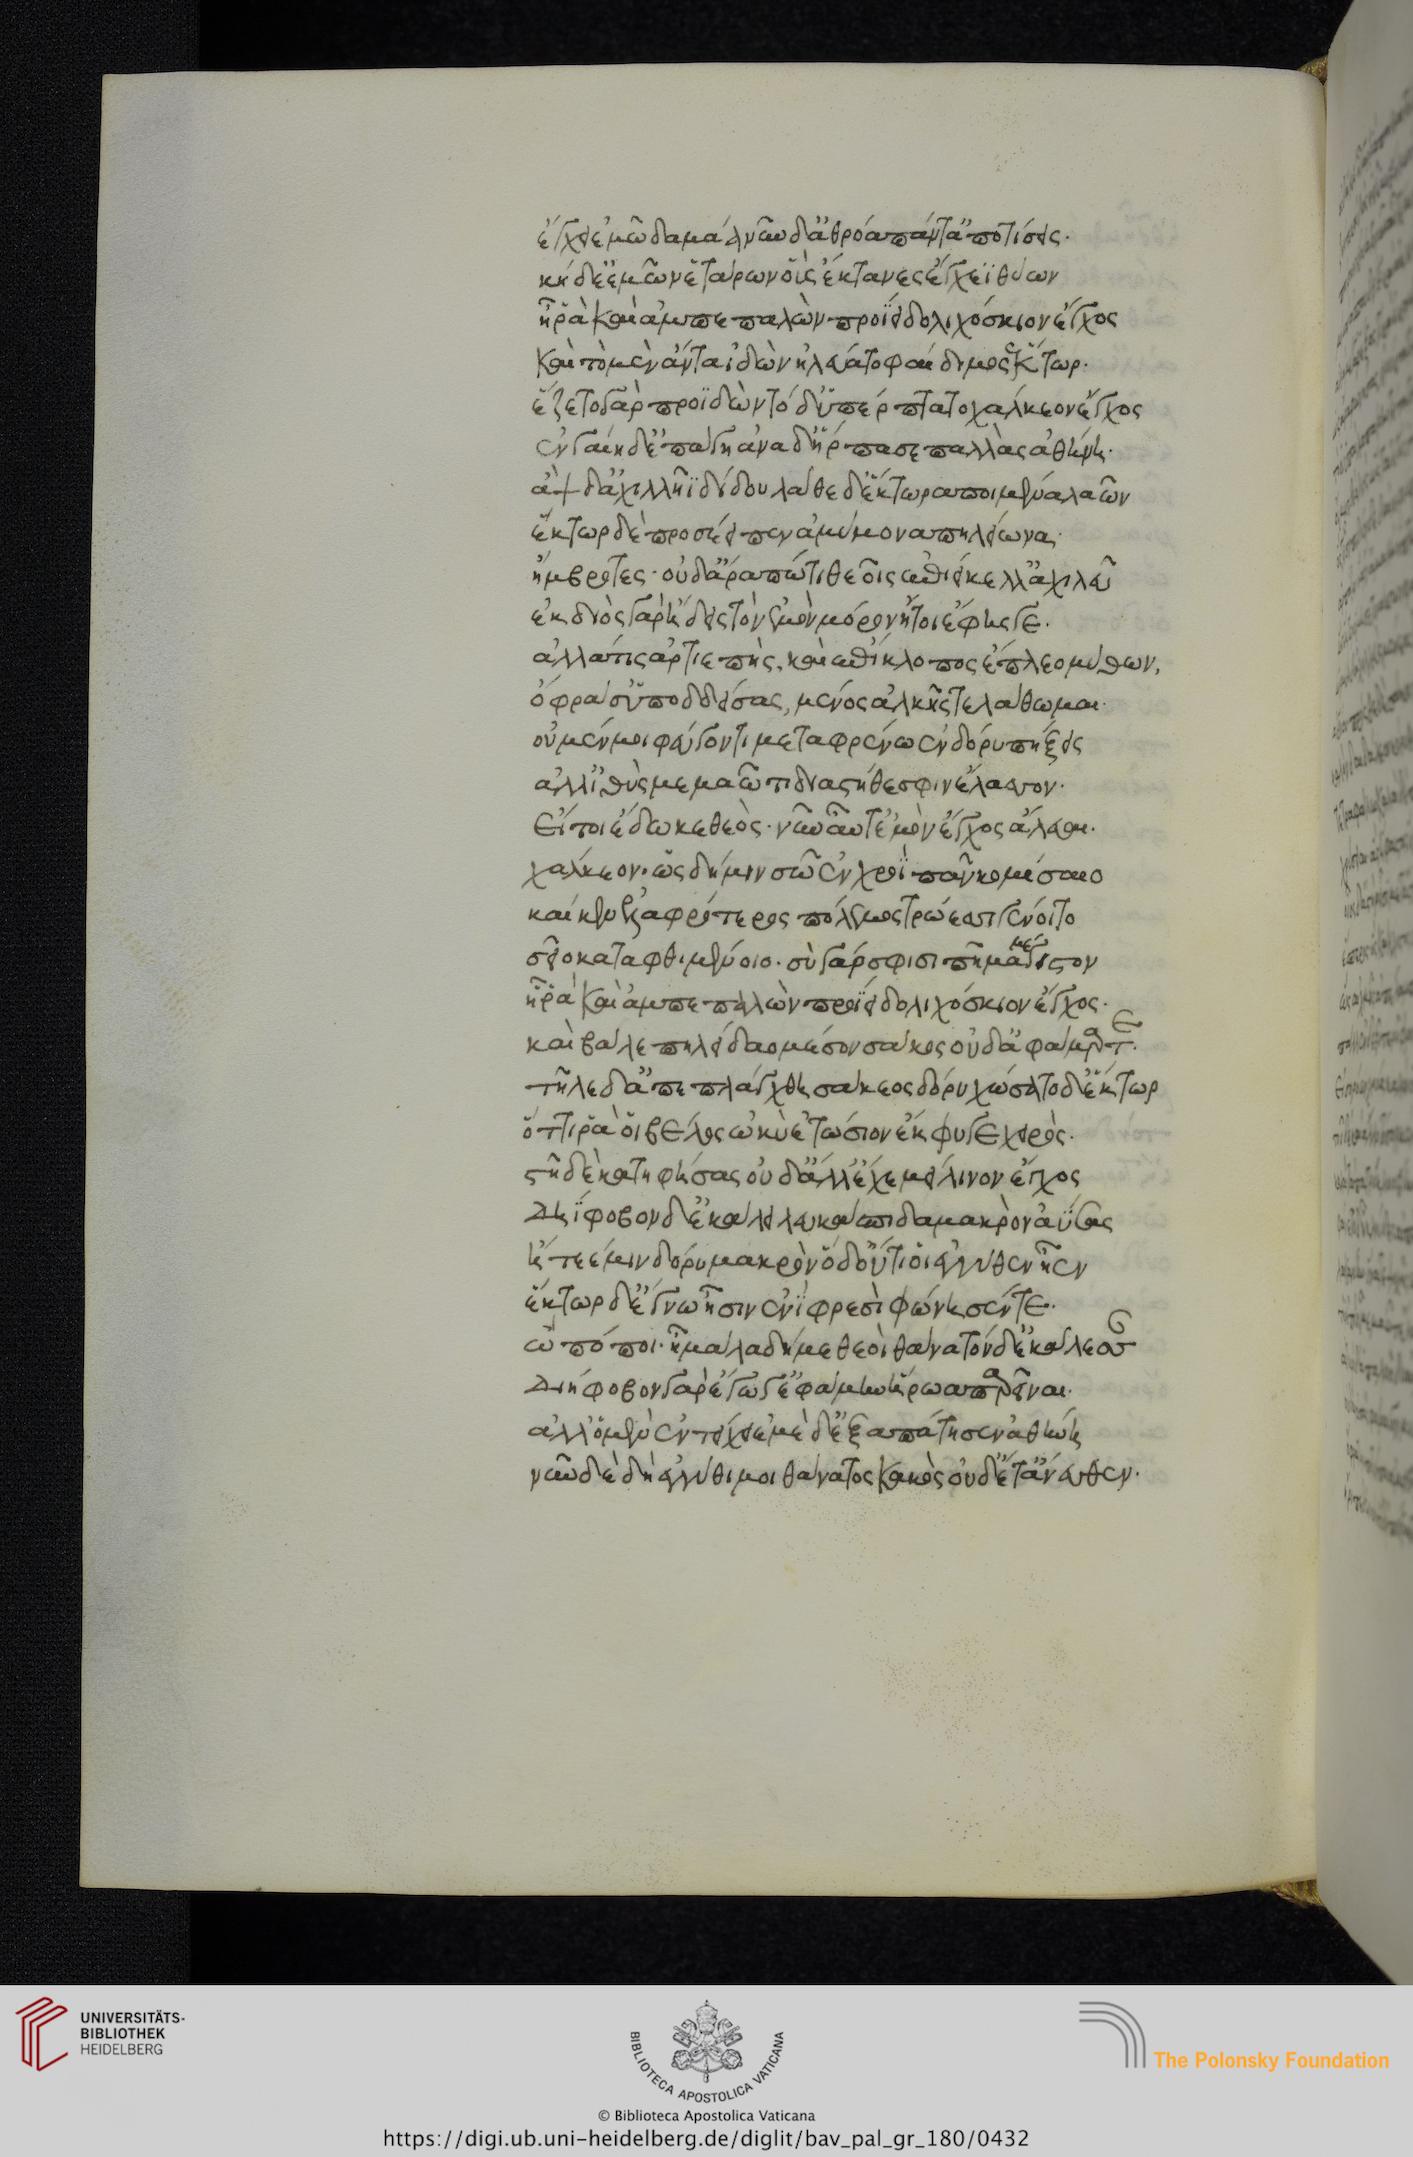 ἔγχει ἐμῶ δαμάει νῦν δ' ἀθρόα πάντ' ἀποτίσεις.
κήδε' ἐμῶν ἑτάρων οὓς ἔκτανες ἔγχεϊ θύων
ἦ ῥὰ καὶ ἀμπεπαλὼν προΐει δολιχόσκιον ἔγχος
καὶ τὸ μὲν ἄντα ἰδὼν ἠλεύατο φαίδιμος ἕκτωρ.
ἕζετο γὰρ προϊδὼν τό δ' ὑπέρπτατο χάλκεον ἔγχος
ἐν γαίη δ' ἐπάγη ἀνὰ δ' ἥρπασε παλλὰς ἀθήνη.
ἂψ δ' ἀχιλλῆϊ δίδου λάθε δ' ἕκτωρα ποιμένα λαῶν
ἕκτωρ δὲ προσέειπεν ἀμύμονα πηλείωνα.
ἤμβροτες. οὐδ' ἄρα πώ τι θεοῖς ἐπιείκελ' ἀχιλεῦ
ἐκ διὸς γὰρ ἤδεις τὸν ἐμὸν μόρον ἤτοι ἔφης γε.
ἀλλά τις ἀρτιεπὴς, καὶ ἐπίκλοπος ἔπλεο μύθων,
ὄφρα σ' ὑποδδείσας, μένος ἀλκῆς τε λάθωμαι.
οὐ μέν μοι φεύγοντι μεταφρένω ἐν δόρυ πήξεις
ἀλλ' ἰθὺς μεμαῶτι διὰ στήθεσφιν ἔλασσον.
εἴ τοι ἔδωκε θεὸς. νῦν αὖτ' ἐμὸν ἔγχος ἄλευαι.
χάλκεον. ὡς δή μιν σῶ ἐν χροῒ πᾶν κομίσαιο
καί κεν ἐλαφρότερος πόλεμος τρώεσσι γένοιτο
σεῖο καταφθιμένοιο. σὺ γάρ σφισι πῆμα μέγιστον
ἦ ῥὰ καὶ ἀμπεπαλὼν προΐει δολιχόσκιον ἔγχος.
καὶ βάλε πηλείδαο μέσον σάκος οὐδ' ἀφάμαρτε.
τῆλε δ' ἀπεπλάγχθη σάκεος δόρυ χώσατο δ' ἕκτωρ
ὅττι ῥὰ οἱ βέλος ὠκὺ ἐτώσιον ἔκφυγε χειρὸς.
στῆ δὲ κατηφήσας οὐδ' ἄλλ' ἔχε μείλινον ἔγχος
Δηΐφοβον δ' ἐκάλει λευκάσπιδα μακρὸν ἀΰσας
ᾔτεέ μιν δόρυ μακρὸν ὁ δ' οὔ τι οἱ ἐγγύθεν ἦεν
ἕκτωρ δ' ἔγνω ᾗσιν ἐνὶ φρεσὶ φώνησέν τε.
ὢ πόποι. ἦ μάλα δή με θεοὶ θάνατόνδ' ἐκάλεσσαν
Δηΐφοβον γὰρ ἔγωγ' ἐφάμην ἥρωα παρεῖναι.
ἀλλ' ὁ μὲν ἐν τείχει ἐμὲ δ' ἐξαπάτησεν ἀθήνη
νῦν δὲ δὴ ἐγγύθι μοι θάνατος κακὸς οὐδ' ἔτ' ἄνευθεν.
UNIVERSITÄTS-
BIBLIOTHEK
HEIDELBERG
BIBLIOTECA APOSTOLICA VATICANA
The Polonsky Foundation
© Biblioteca Apostolica Vaticana
https://digi.ub.uni-heidelberg.de/diglit/bav_pal_gr_180/0432